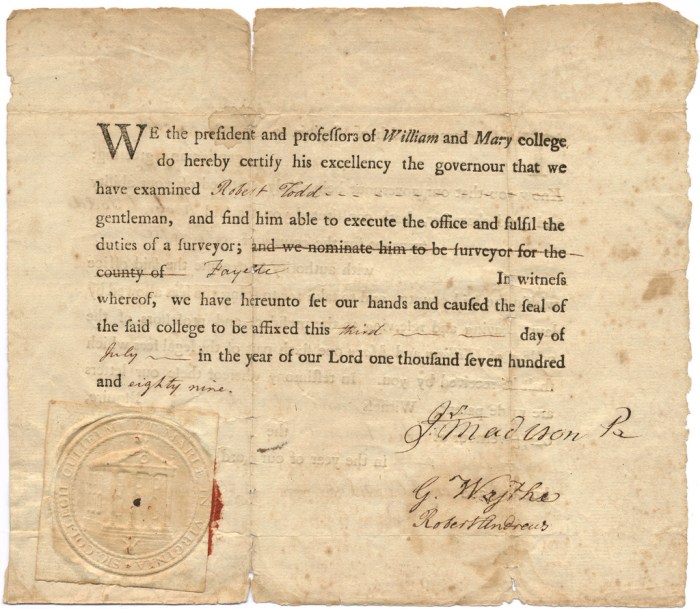 WE the preſident and profeſſors of William and Mary college,
do hereby certify his excellency the governour that we
have examined Robert Todd
gentleman, and find him able to execute the office and fulfil the
duties of a ſurveyor; and we nominate him to be ſurveyor for the
county of Fayette In witneſs
whereof, we have hereunto ſet our hands and cauſed the ſeal of
the ſaid college to be affixed this third day of
July in the year of our Lord one thouſand ſeven hundred
and eighty nine.
Js. Madison Pr
G. Wythe
Robert Andrews
IN VIRGINIA